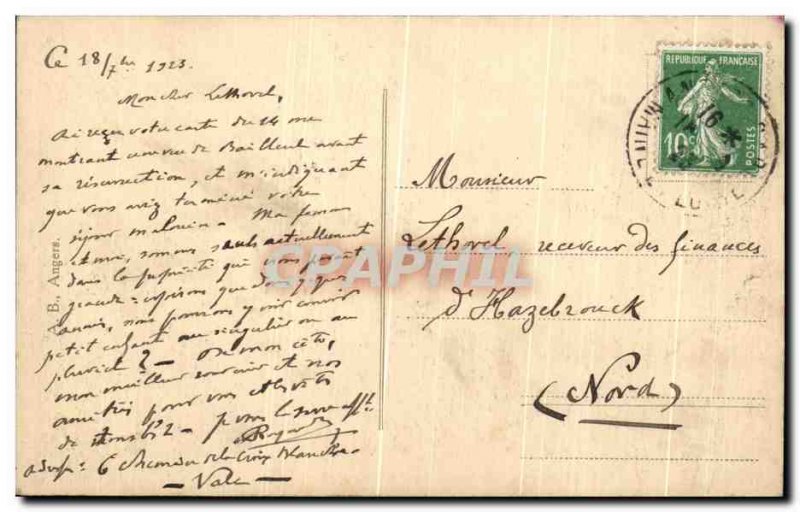 Ce 18/7bre 1923.
Mon cher Lethorel,
Ai reçu votre carte du 14 me
montrant une vue de Bailleul avant
sa résurrection, et m'indiquant
que vous avez terminé votre
séjour malouin. Ma femme
et moi, sommes seuls actuellement
dans la propriété que vous
grande : espérons que dans quelques
années, nous pourrons y voir courir
petit enfant au singulier ou au
pluriel? - De mon côté,
mon meilleur souvenir et nos
amitiés pour vous et
de
adresse : 6 chemin de la Croix Blanche
- Vale -
B., Angers.
REPUBLIQUE FRANÇAISE
10c
POSTES
16 *
Monsieur
Lethorel receveur des finances
d'Hazebrouck
(Nord)
CPAPHIL